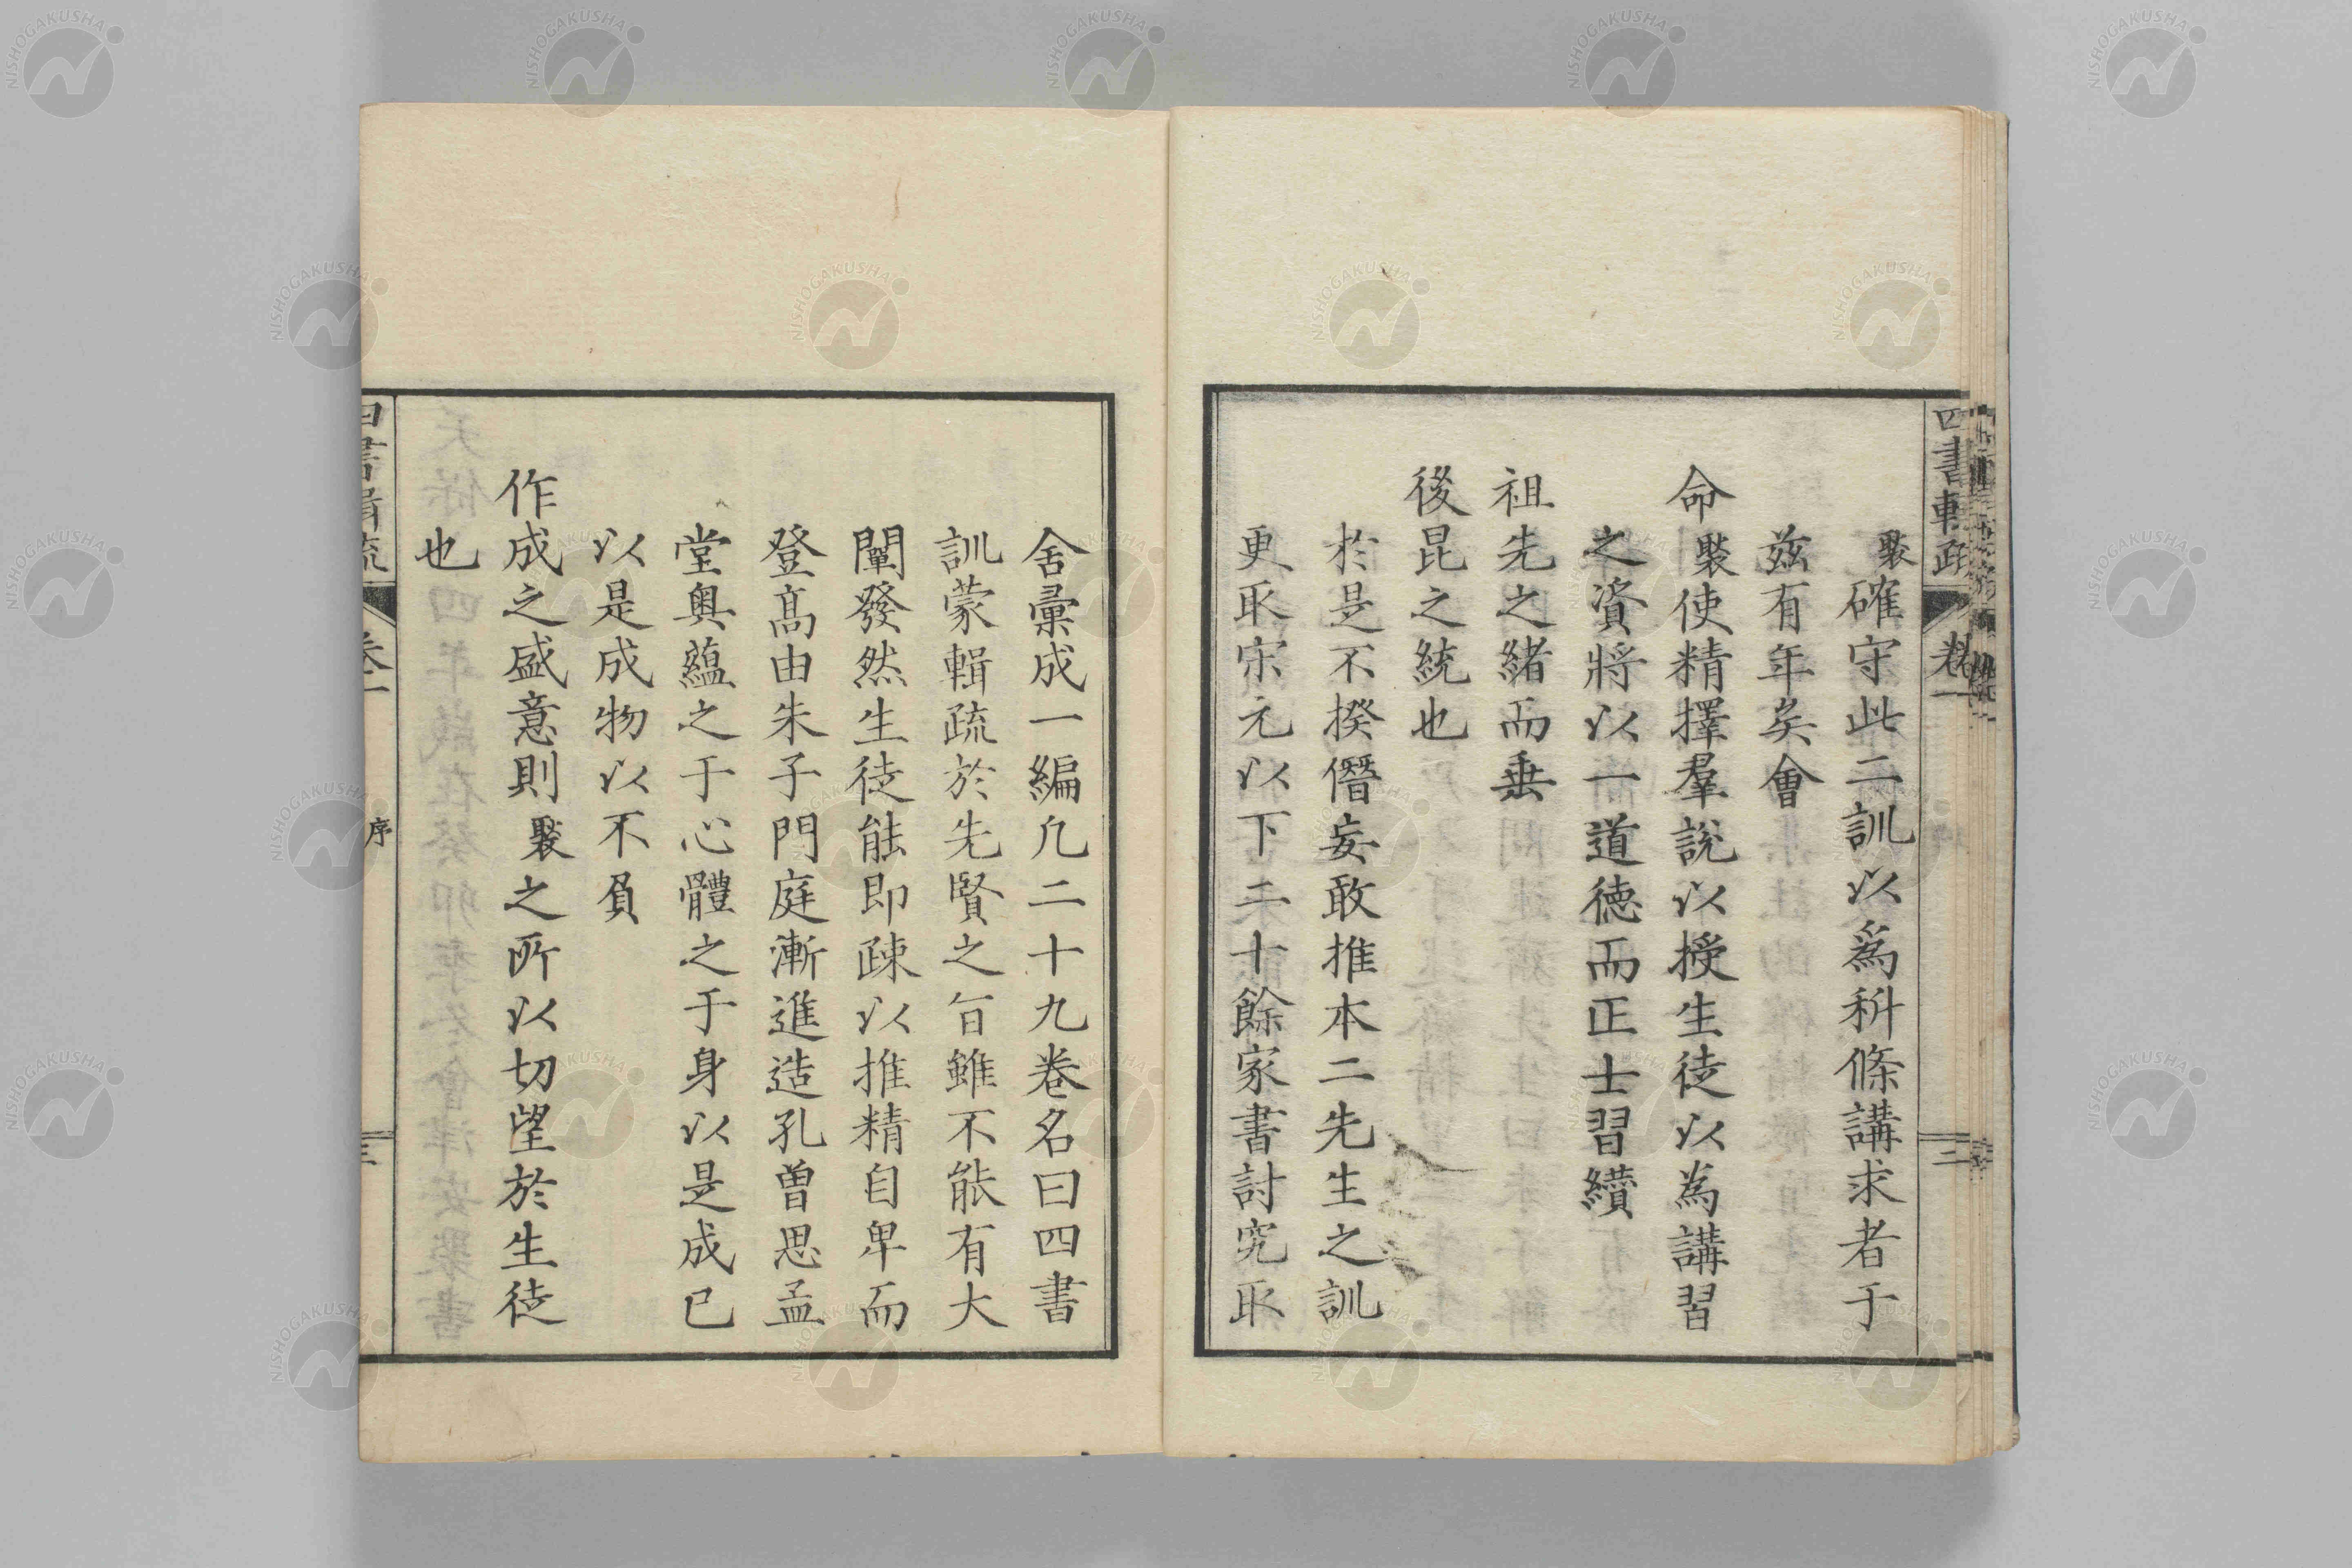 四書輯疏 卷一 三
褧確守此二訓以爲科條講求者于
茲有年矣會
命褧使精擇羣說以授生徒以為講習
之資將以一道德而正士習纘
祖先之緒而垂
後昆之統也
於是不揆僭妄敢推本二先生之訓
更取宋元以下二十餘家書討究取
舍彙成一編凡二十九卷名曰四書
訓蒙輯疏於先賢之旨雖不能有大
闡發然生徒能即疎以推精自卑而
登高由朱子門庭漸進造孔曾思孟
堂奧蘊之于心體之于身以是成己
以是成物以不負
作成之盛意則褧之所以切望於生徒
也
四書輯疏 卷一 序 三
NISHOGAKUSHA